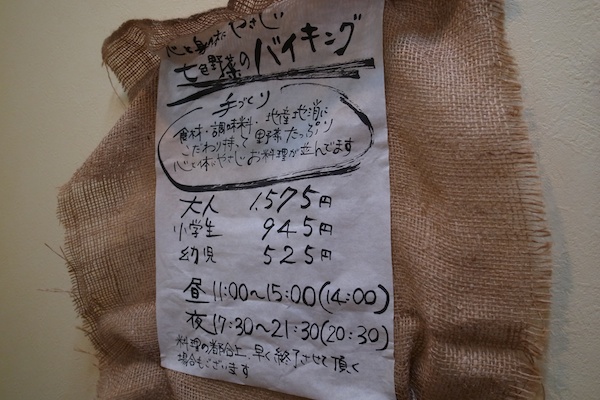 心と身体にやさしい
七色野菜のバイキング
手づくり
食材・調味料・地産地消に
こだわり持って野菜たっぷり
心と体にやさしいお料理が並んでます
大人 1,575円
小学生 945円
幼児 525円
昼 11:00～15:00(14:00)
夜 17:30～21:30(20:30)
料理の都合上、早く終了させて頂く
場合もございます